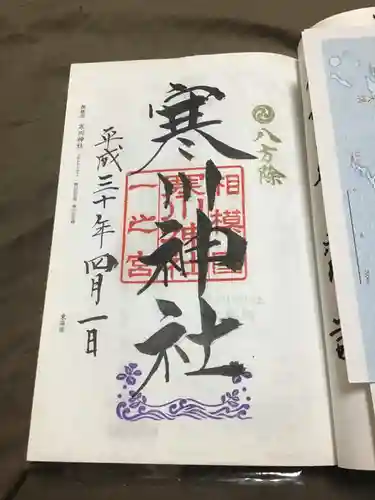 八方除
寒川神社
相模國
寒川神社
一之宮
平成三十年四月一日
寒川神社